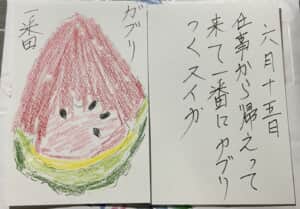 六月十五日
仕事から帰えって
来て一番にカブリ
つくスイカ
ガブリ
一番